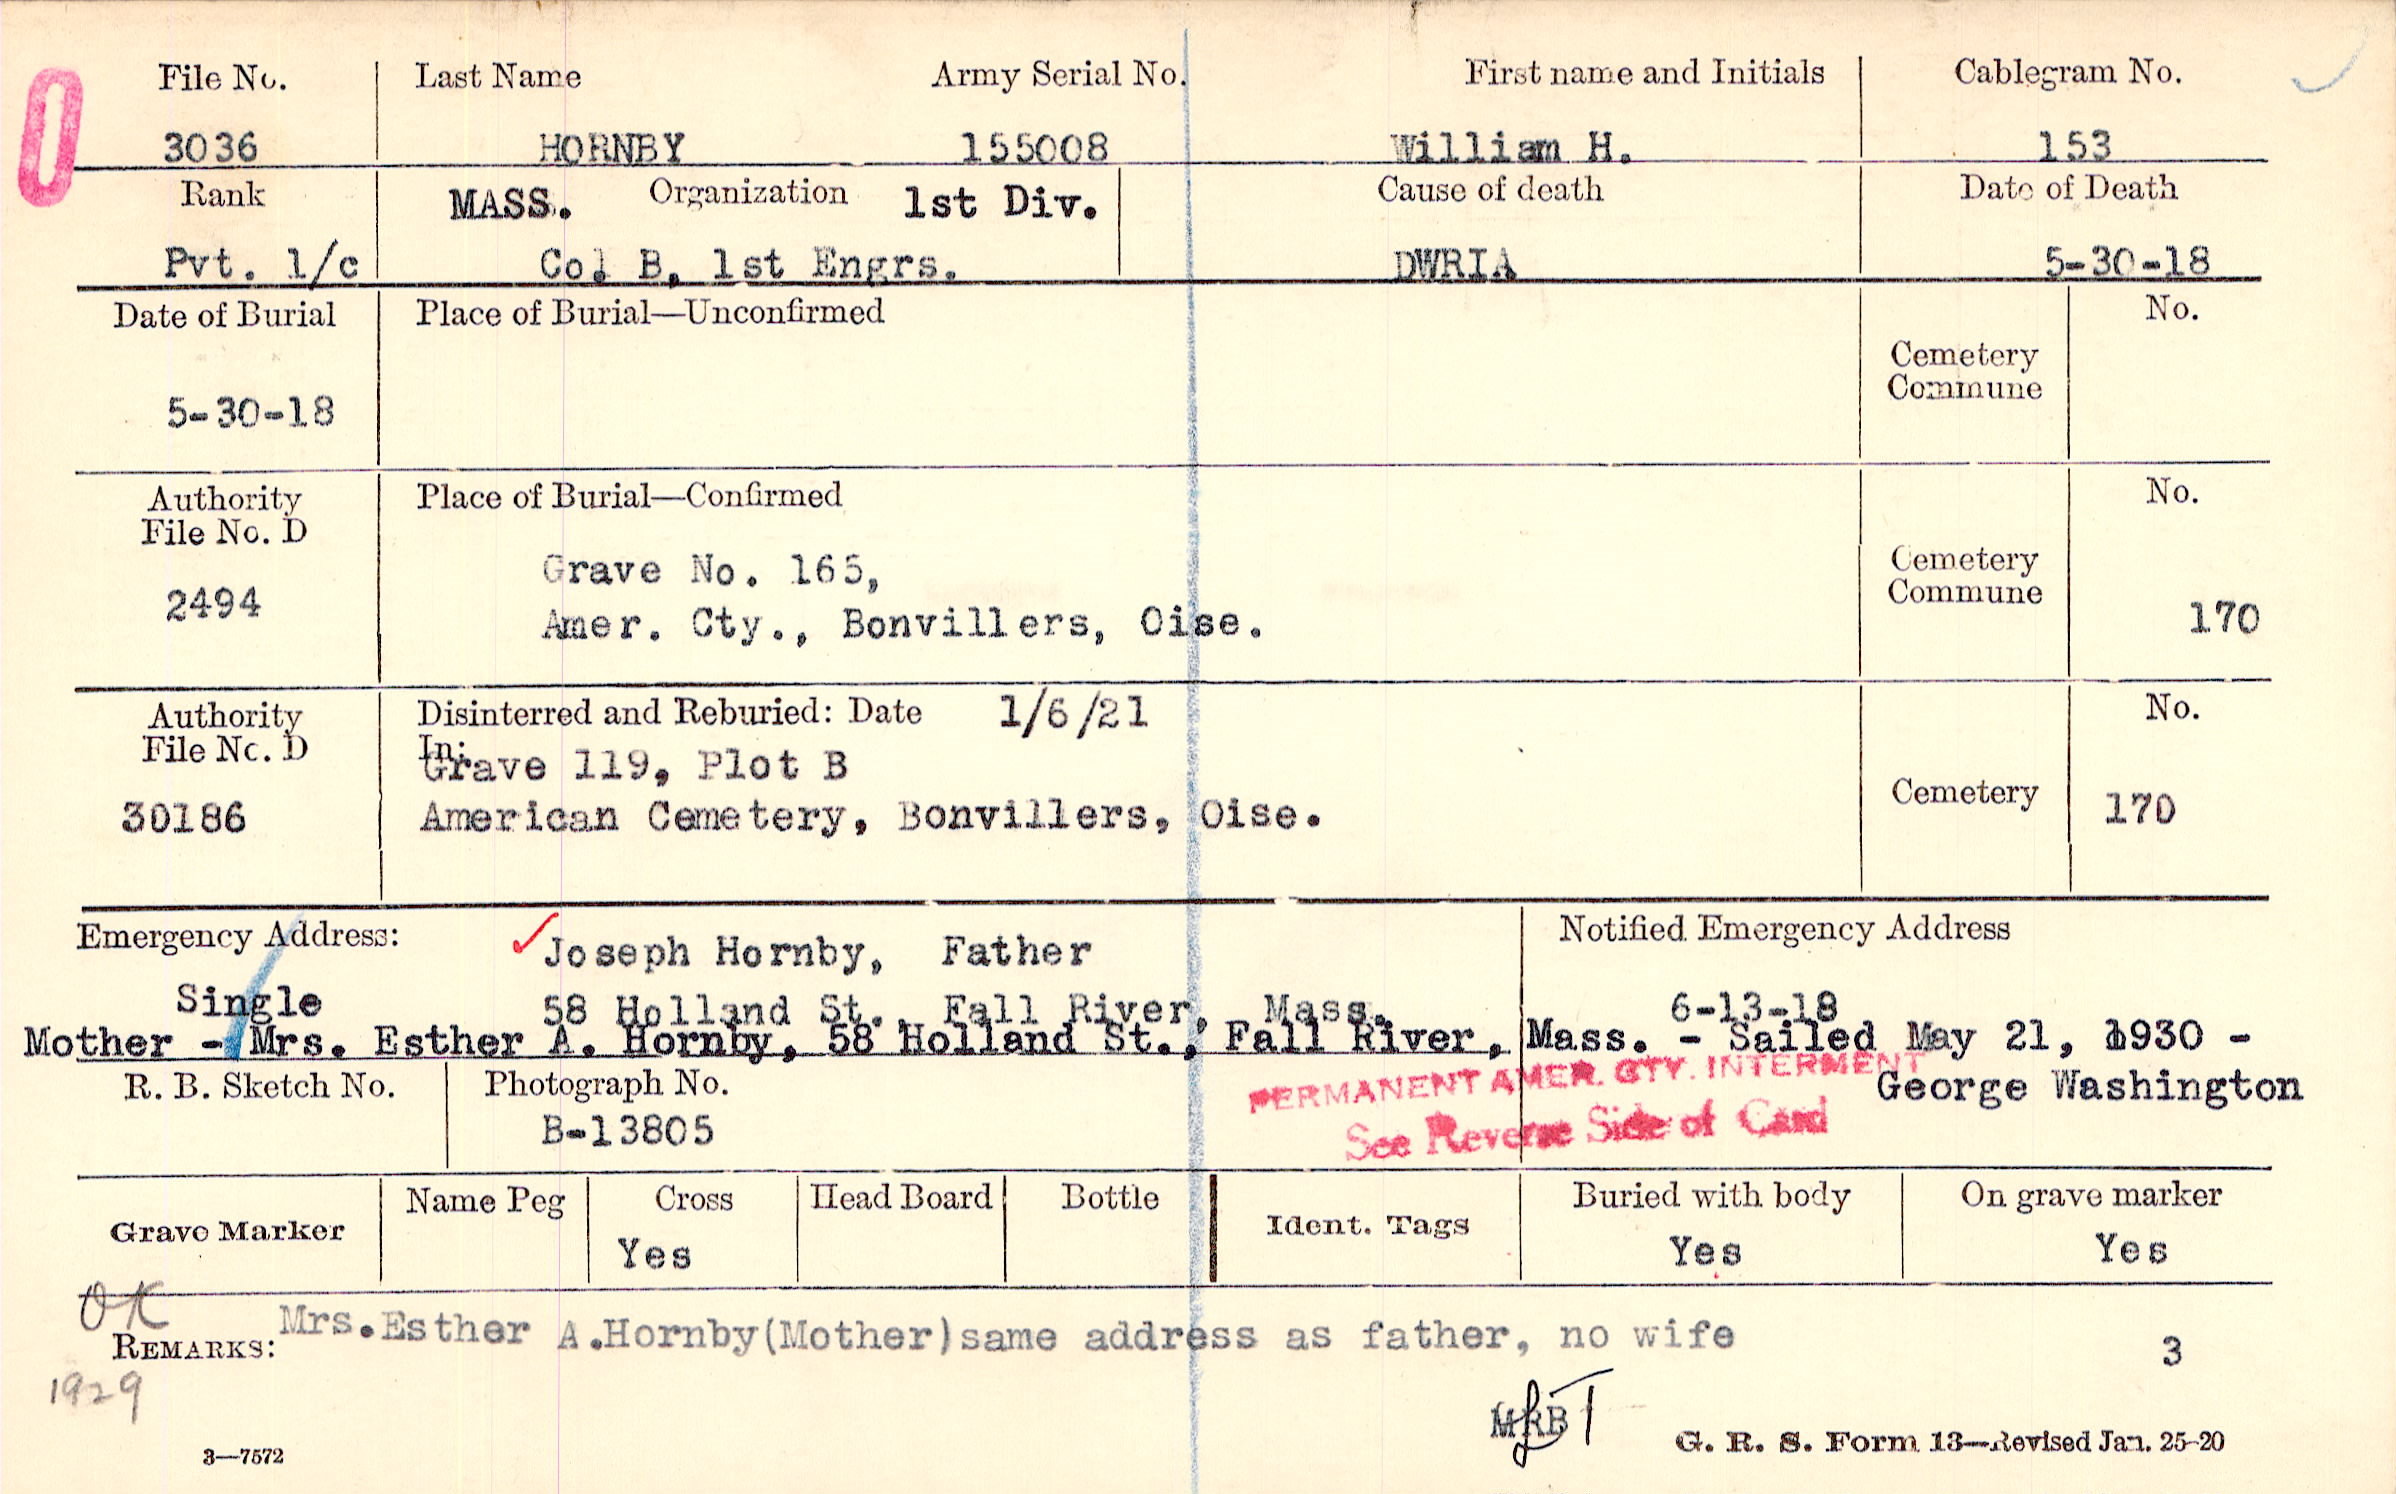 0
File No. Last Name Army Serial No. First name and Initials Cablegram No.
3036 HORNBY 155008 William H. 153
Rank MASS. Organization 1st Div. Cause of death Date of Death
Pvt. 1/c Co. B, 1st Engrs. DWRIA 5-30-18
Date of Burial Place of Burial—Unconfirmed No.
Cemetery
Commune
5-30-18
Authority Place of Burial—Confirmed No.
File No. D
Grave No. 165, Cemetery
2494 Commune
Amer. Cty., Bonvillers, Oise. 170
Authority Disinterred and Reburied: Date 1/6/21 No.
File No. D In:
Grave 119, Plot B
30186 American Cemetery, Bonvillers, Oise. Cemetery 170
Emergency Address: Joseph Hornby, Father Notified Emergency Address
Single 58 Holland St., Fall River, Mass. 6-13-18
Mother - Mrs. Esther A. Hornby, 58 Holland St., Fall River, Mass. - Sailed May 21, 1930 -
George Washington
R. B. Sketch No. Photograph No. PERMANENT AMER. CTY. INTERMENT
B-13805 See Reverse Side of Card
Grave Marker Name Peg Cross Head Board Bottle Ident. Tags Buried with body On grave marker
Yes Yes Yes
OK
REMARKS: Mrs.Esther A.Hornby(Mother)same address as father, no wife 3
1929
MRB
3—7572 G. R. S. Form 13—Revised Jan. 25-20